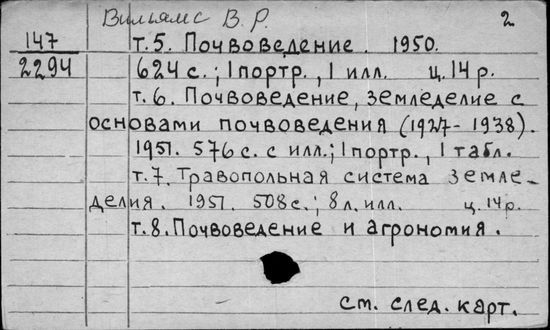 Вильямс В. Р. 2
147 т.5. Почвоведение. 1950.
2294 624 с.; 1 портр., 1 илл. ц. 14 р.
т. 6. Почвоведение, земледелие с
основами почвоведения (1927-1938).
1951. 576 с. с илл.; 1 портр., 1 табл.
т. 7. Травопольная система земле-
делия. 1951. 508 с.; 8 л. илл. ц. 14 р.
т. 8. Почвоведение и агрономия.
см. след. карт.